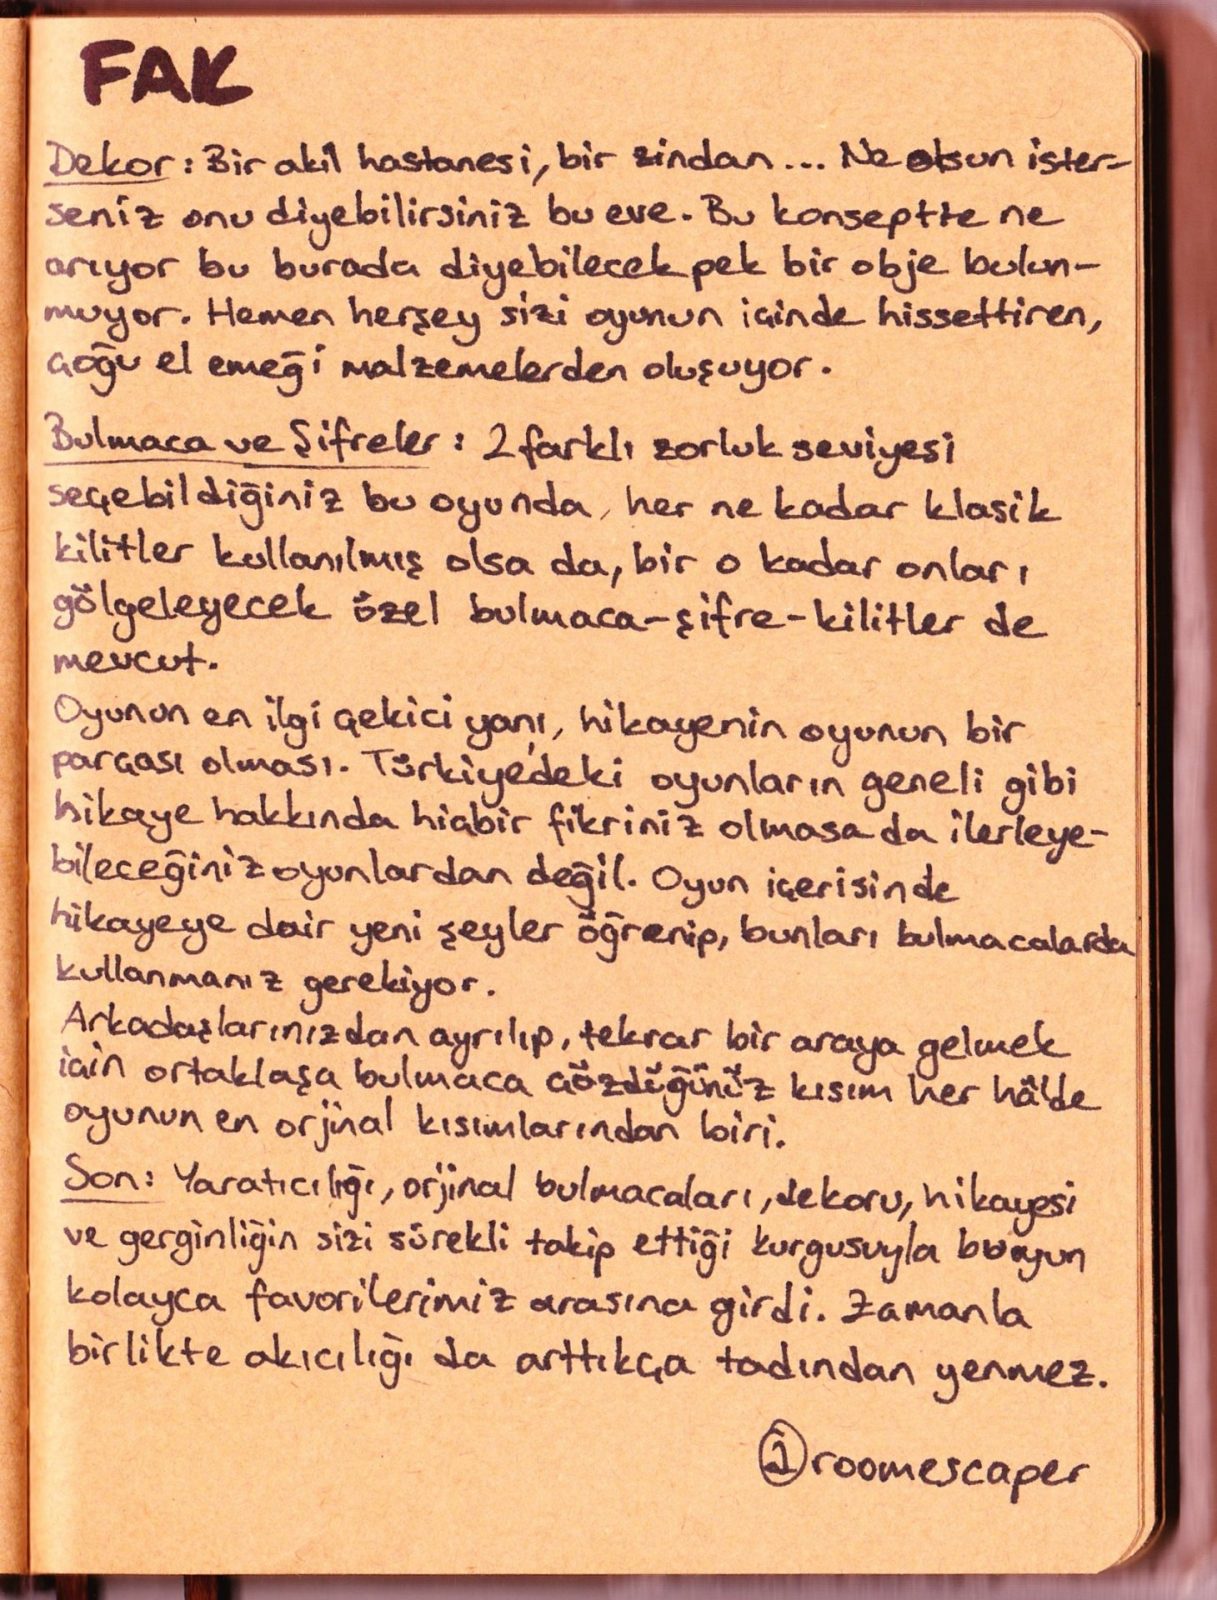 FAK
Dekor: Bir akıl hastanesi, bir zindan... Ne olsun ister-
seniz onu diyebilirsiniz bu eve. Bu konseptte ne
arıyor bu burada diyebilecek pek bir obje bulun-
muyor. Hemen herşey sizi oyunun içinde hissettiren,
çoğu el emeği malzemelerden oluşuyor.
Bulmaca ve Şifreler: 2 farklı zorluk seviyesi
seçebildiğiniz bu oyunda, her ne kadar klasik
kilitler kullanılmış olsa da, bir o kadar onları
gölgeleyecek özel bulmaca-şifre-kilitler de
mevcut.
Oyunun en ilgi çekici yanı, hikayenin oyunun bir
parçası olması. Türkiye'deki oyunların geneli gibi
hikaye hakkında hiçbir fikriniz olmasa da ilerleye-
bileceğiniz oyunlardan değil. Oyun içerisinde
hikayeye dair yeni şeyler öğrenip, bunları bulmacalarda
kullanmanız gerekiyor.
Arkadaşlarınızdan ayrılıp, tekrar bir araya gelmek
için ortaklaşa bulmaca çözdüğünüz kısım her hâlde
oyunun en orjinal kısımlarından biri.
Son: Yaratıcılığı, orjinal bulmacaları, dekoru, hikayesi
ve gerginliğin sizi sürekli takip ettiği kurgusuyla bu oyun
kolayca favorilerimiz arasına girdi. Zamanla
birlikte akıcılığı da arttıkça tadından yenmez.
①roomescaper